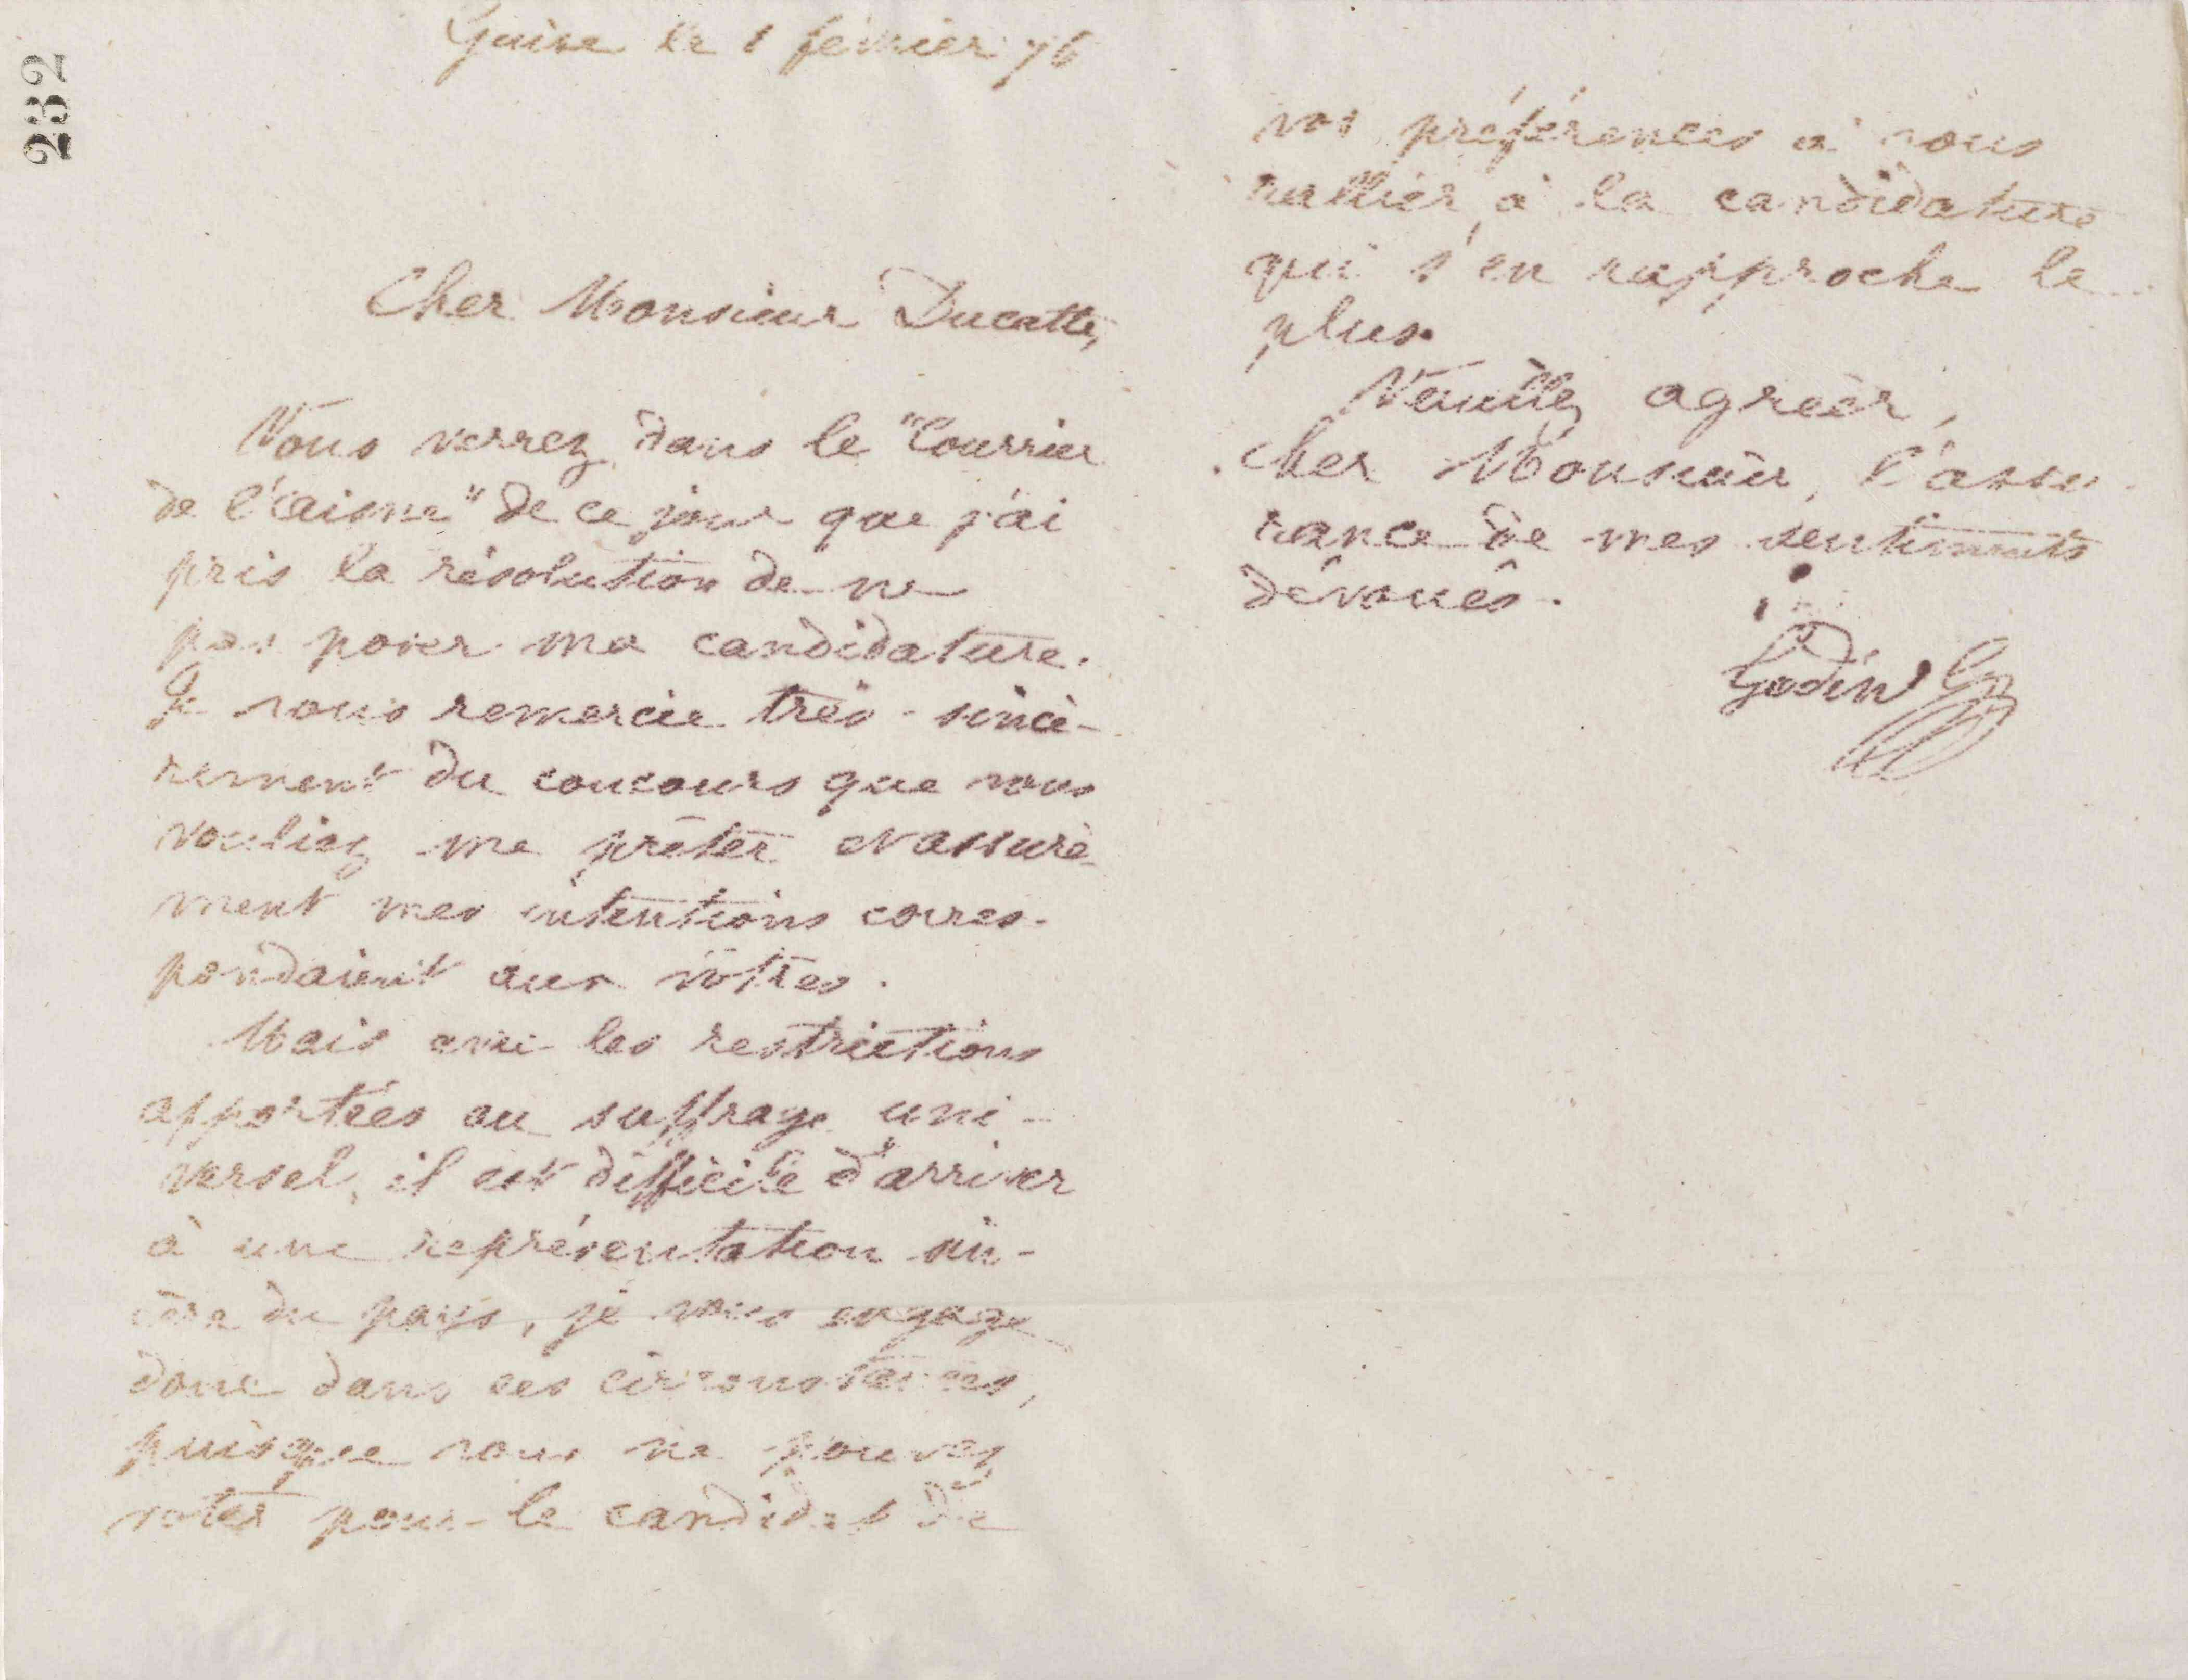 232
Guise le 1 février 76
Cher Monsieur Ducatte,
Vous verrez dans le "Courrier
de l'aisne" de ce jour que j'ai
pris la résolution de ne
pas poser ma candidature.
Je vous remercie très-sincè-
rement du concours que vous
vouliez me prêter et assuré-
ment mes intentions corres-
pondaient aux vôtres.
Mais avec les restrictions
apportées au suffrage uni-
versel, il est difficile d'arriver
à une représentation sin-
cère du pays, je vous engage
donc dans ces circonstances,
puisque vous ne pouvez
voter pour le candidat de
vos préférences à vous
rallier à la candidature
qui s'en rapproche le
plus.
Veuillez agréer,
cher Monsieur, l'assu-
rance de mes sentiments
dévoués.
Godin